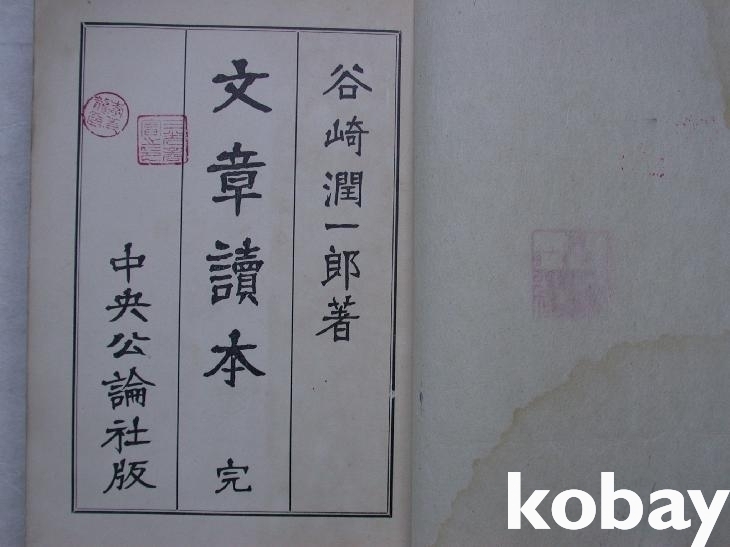 谷崎潤一郎著
文章讀本 完
中央公論社版
kobay